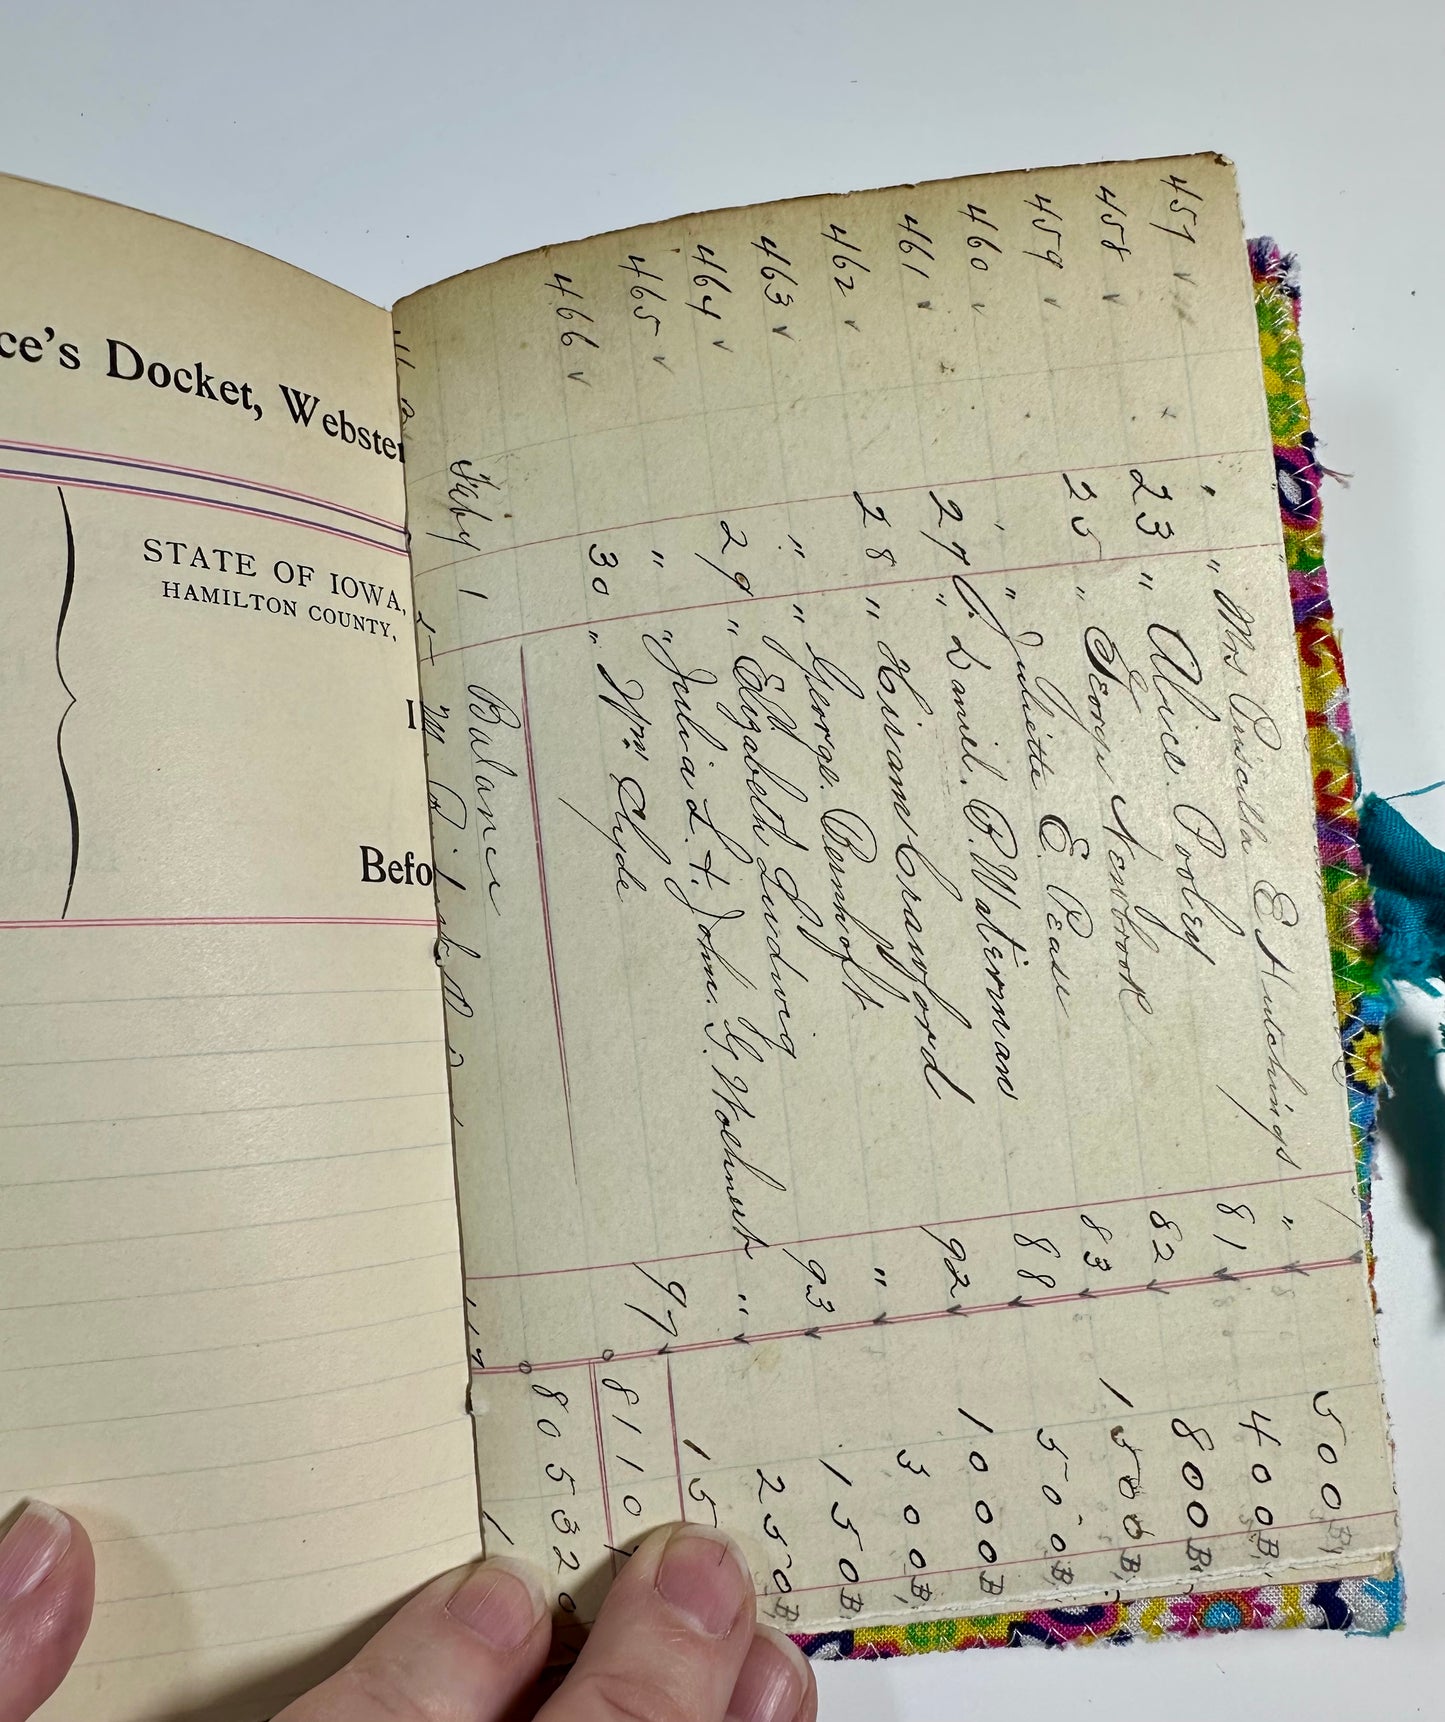 ce's Docket, Webster
STATE OF IOWA,
HAMILTON COUNTY,
Befo
457 " " Mrs Priscilla E Hutchings " 500 B
458 23 " Alice Pooley 81 400 B
459 25 " George Newbrook 82 800 B
460 " " Juliette E. Pease 83 1500 B
461 27 " Daniel P. Waterman 88 500 B
462 28 " Hiram Crawford 92 1000 B
463 " " George Bernhoft " 300 B
464 29 " Elizabeth Ludwig 93 150 B
465 " " Julia L. + John G. Woehnert " 250 B
466 30 " Wm. Clyde 97 15
8110
Feby 1 Balance 80532